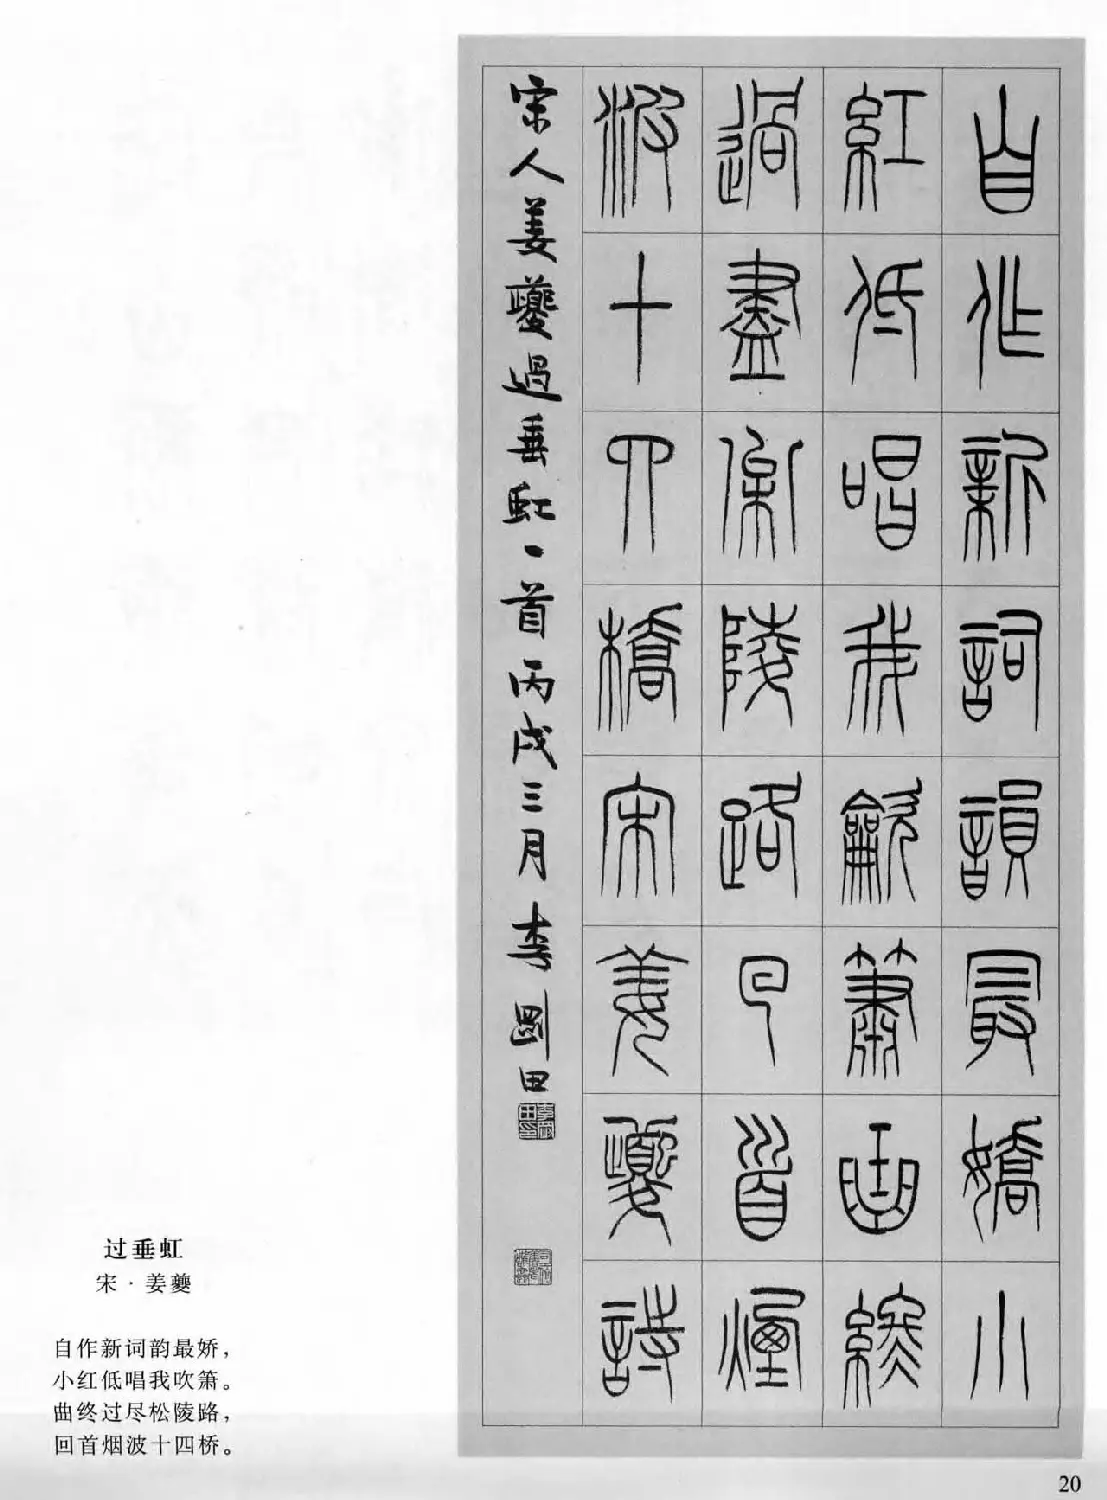 自作新詞韻最嬌小
紅低唱我龡簫曲終
過盡松陵路回首煙
波十四橋宋姜夔詩
宋人姜夔過垂虹一首丙戌三月李剛田
过垂虹
宋·姜夔
自作新词韵最娇，
小红低唱我吹箫。
曲终过尽松陵路，
回首烟波十四桥。
20